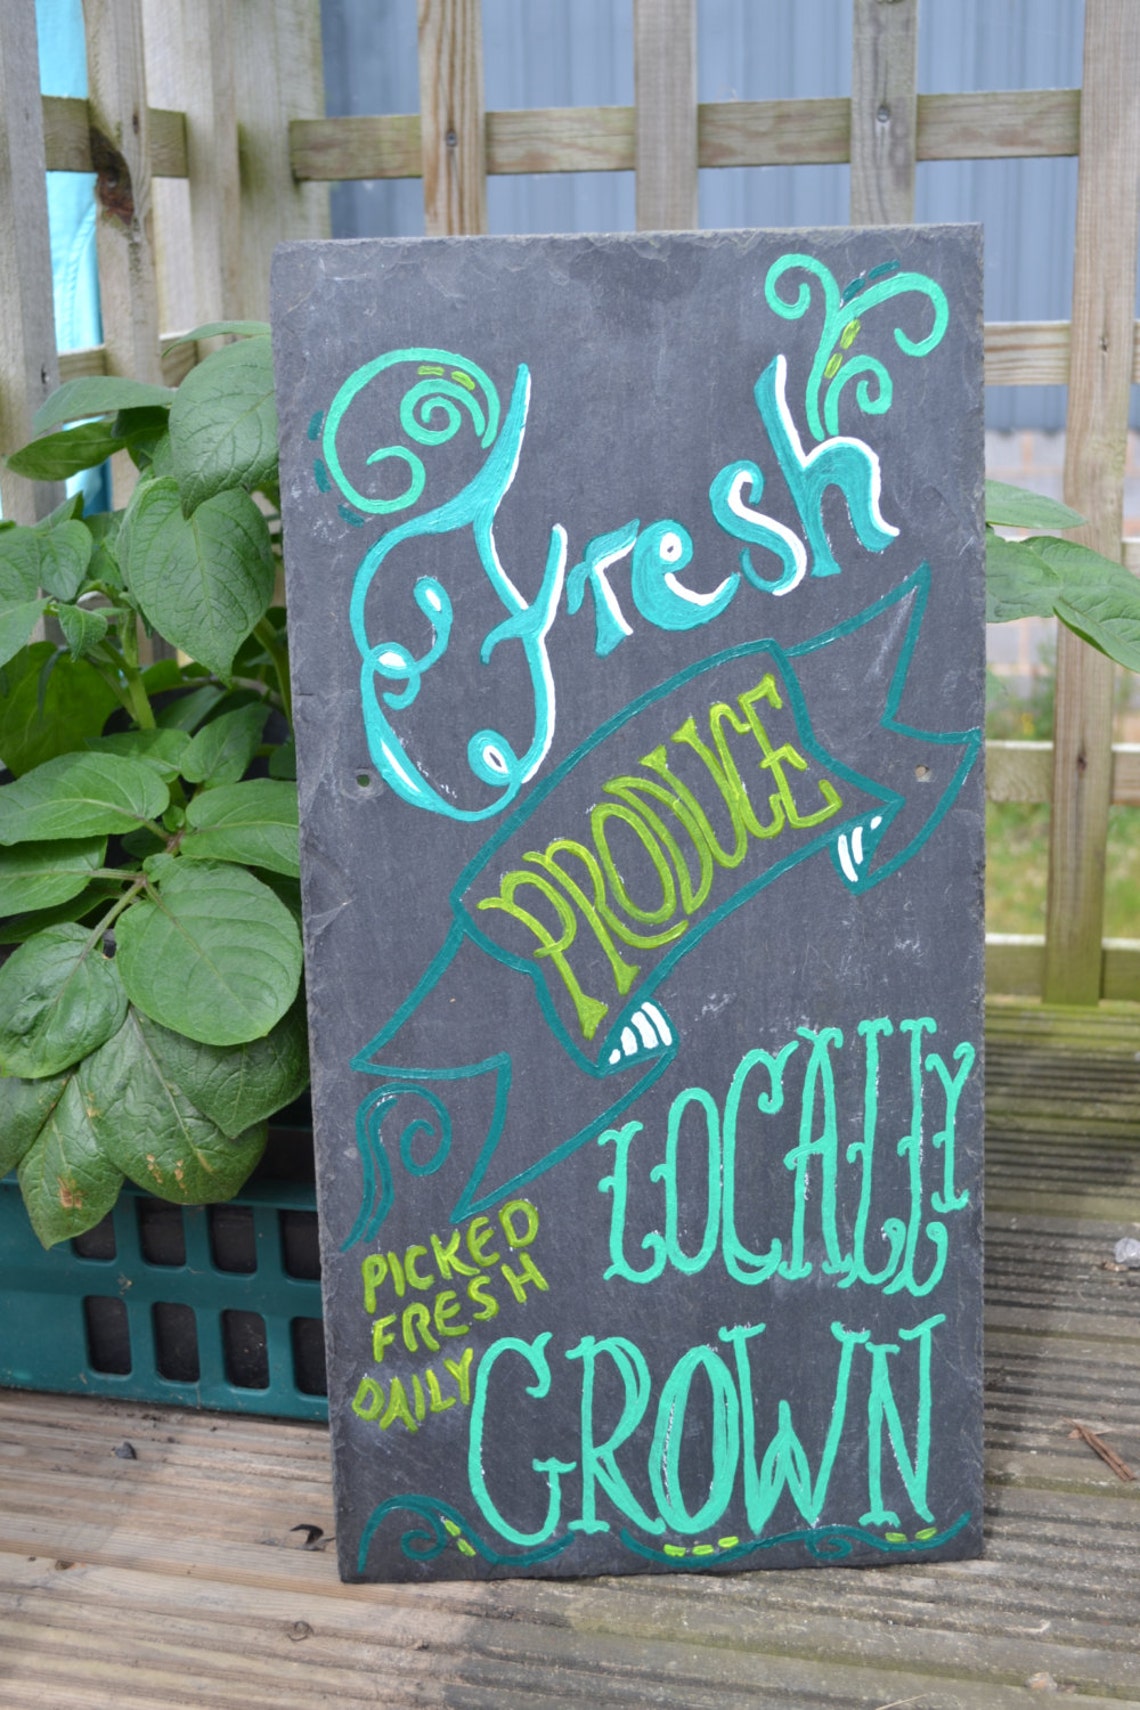 Fresh
PRODUCE
LOCALLY
PICKED
FRESH
DAILY
GROWN